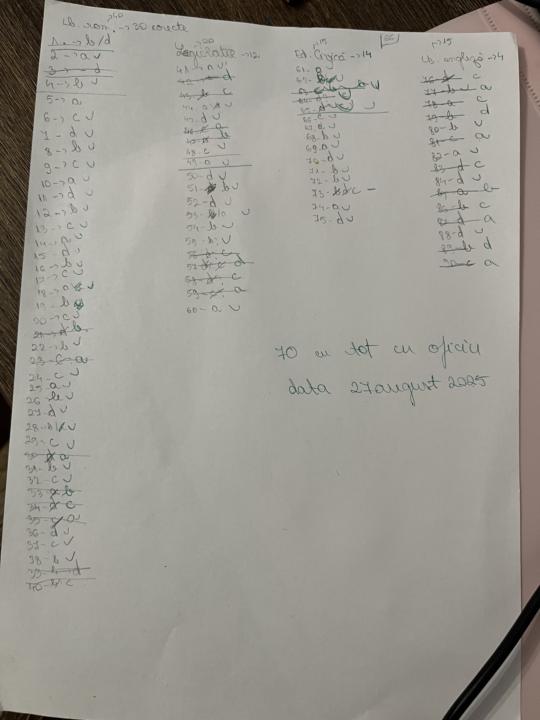 Lb. rom. → 30 corecte
40
1. → b/d
2 → a v
3 → d
4 → b v
5 → a
6 → c v
7 → d v
8 → b v
9 → c v
10 → a v
11 → d v
12 → b v
13 → c v
15 - a v
16 - b v
17 - c v
19 - b
20 → c v
22 → b v
23 - c - a
24 - c v
25 - a v
27 - d v
29 - c v
30 - a
31 - b v
32 - c v
33 - b
34 - c
35 - a
36 - d v
37 - c v
38 - b v
39 - d
40 - c
20
Legislație → 12
41 → a v
42 - d
43 - b c
44 - a v
45 - d v
46 - b
48 - c v
49 - a v
50 - d v
51 - b v
52 - d v
54 - b v
55 - b v
56 - c
57 - d
58 - c
59 - a
60 - a v
15
Ed. Civică → 14
61 - a
66 - c
67 - a v
68 - b v
69 - a v
70 - d v
71 - b v
72 - b v
73 - c -
74 - a v
75 - d v
→ 15
Lb. engleză → 4
76 - c
77 - b - a
78 - c
79 - d
80 - b v
81 - a
82 - a v
83 - c
84 - d v
85 - a b
86 - b c
87 - d a
88 - d v
89 - b d
90 - c a
70 cu tot cu oficiu
data 27 august 2025